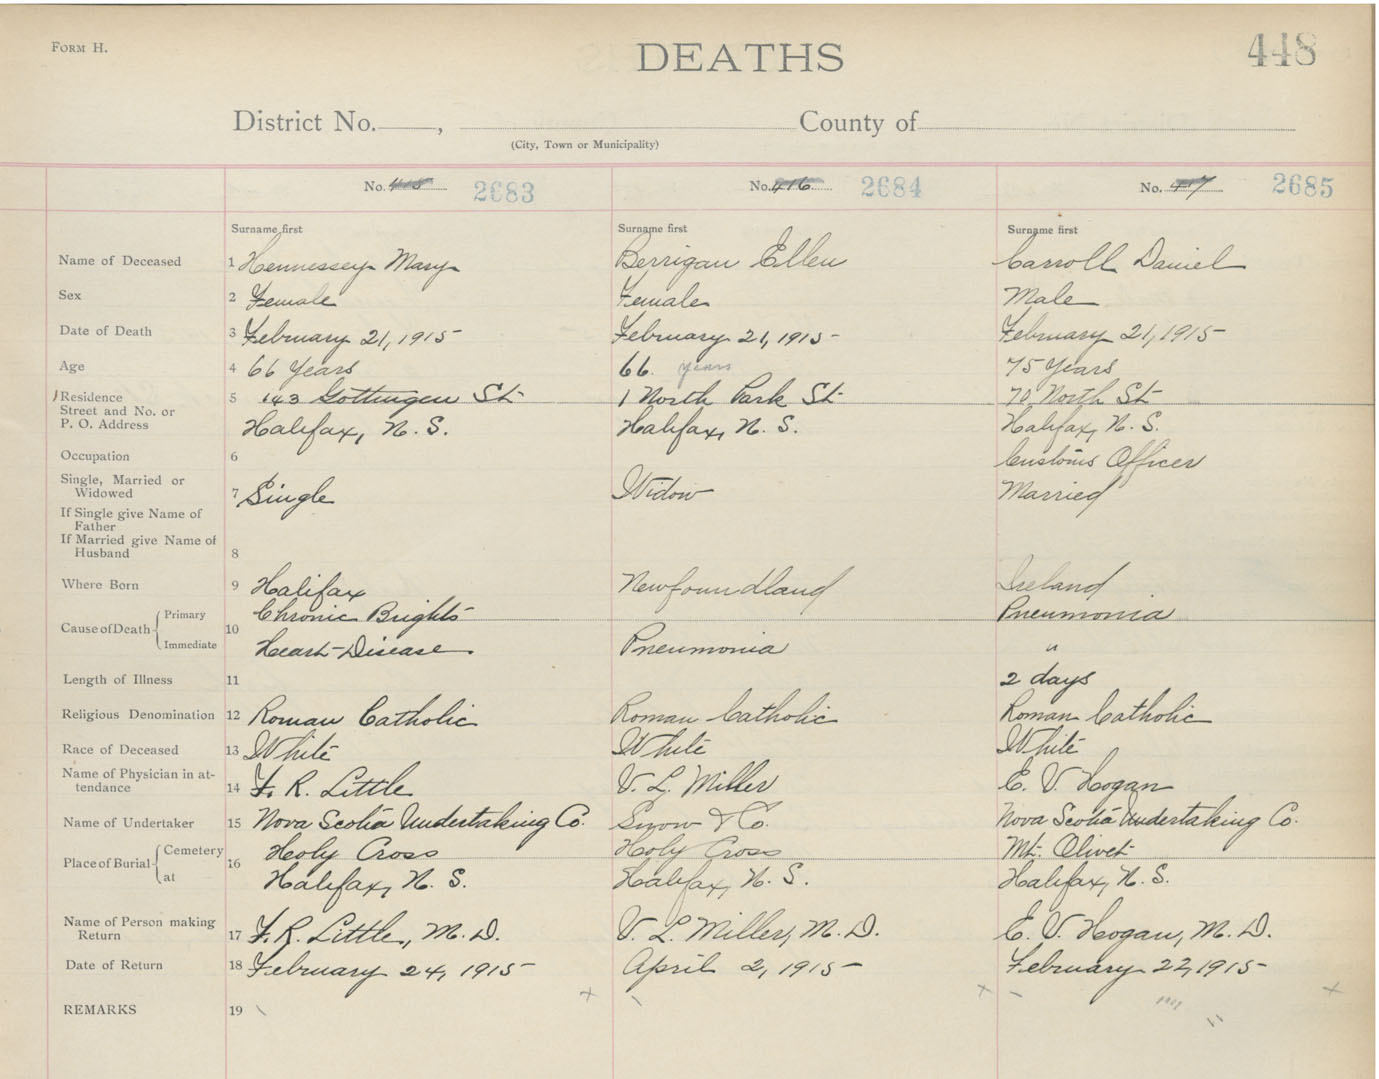 FORM H.
DEATHS
448
District No. , County of
(City, Town or Municipality)
No. 415 2683 No. 416 2684 No. 417 2685
Surname first Surname first Surname first
Name of Deceased 1 Hennessey Mary Berrigan Ellen Carroll Daniel
Sex 2 Female Female Male
Date of Death 3 February 21, 1915 February 21, 1915 February 21, 1915
Age 4 66 Years 66. years 75 Years
Residence 5 143 Gottingen St. 1 North Park St. 70 North St.
Street and No. or
P. O. Address Halifax, N. S. Halifax, N. S. Halifax, N. S.
Occupation 6 Customs Officer
Single, Married or
Widowed 7 Single Widow Married
If Single give Name of
Father
If Married give Name of
Husband 8
Where Born 9 Halifax Newfoundland Ireland
Cause of Death 10 Primary Chronic Brights Pneumonia
Immediate Heart Disease Pneumonia "
Length of Illness 11 2 days
Religious Denomination 12 Roman Catholic Roman Catholic Roman Catholic
Race of Deceased 13 White White White
Name of Physician in at-
tendance 14 F. R. Little V. L. Miller E. V. Hogan
Name of Undertaker 15 Nova Scotia Undertaking Co. Snow & Co. Nova Scotia Undertaking Co.
Place of Burial 16 Cemetery Holy Cross Holy Cross Mt. Olivet
at Halifax, N. S. Halifax, N. S. Halifax, N. S.
Name of Person making
Return 17 F. R. Little, M. D. V. L. Miller, M. D. E. V. Hogan, M. D.
Date of Return 18 February 24, 1915 April 2, 1915 February 22, 1915
REMARKS 19